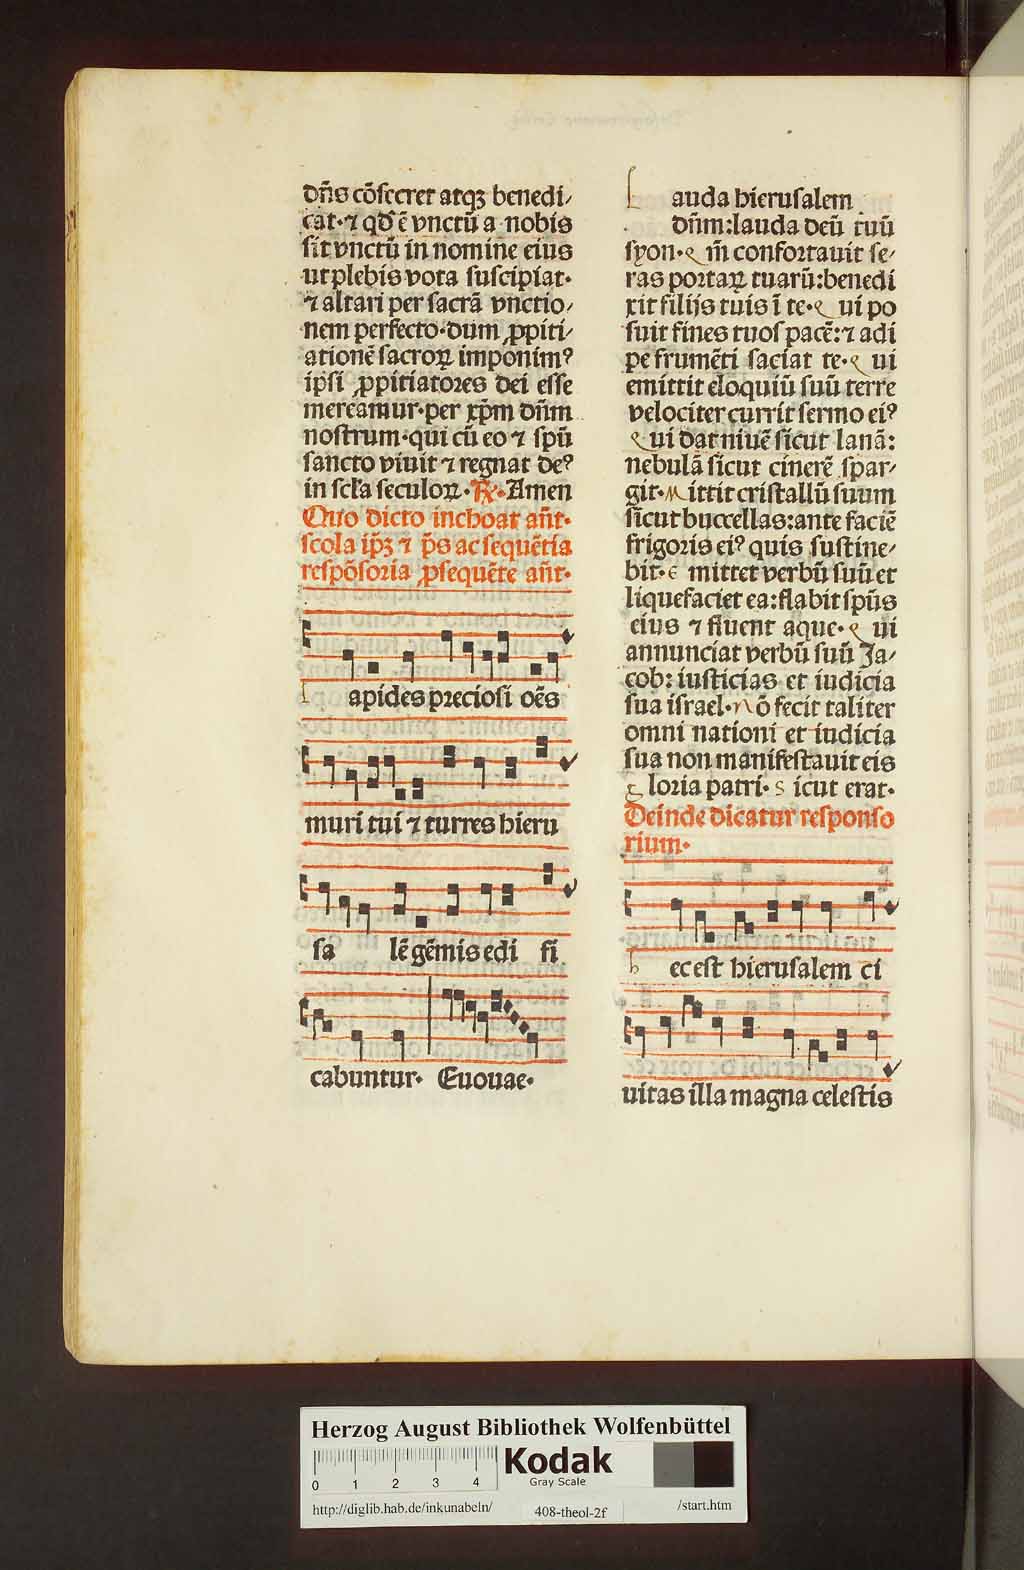 dñs cõsecret atqꝫ benedi/
cat·⁊ qď ē vnctū a nobis
sit vnctū in nomine eius
ut plebis vota suscipiat·
⁊ altari per sacrã vnctio/
nem perfecto·dum ꝓpiti/
ationē sacroꝝ imponimꝰ
ip̃i ꝓpitiatores dei esse
mereamur·per xp̃m dñm
nostrum·qui cū eo ⁊ spũ
sancto viuit ⁊ regnat deꝰ
in scl̃a seculoꝝ·℟·Amen
Quo dicto inchoat añt·
scola ip̃ꝫ ⁊ p̃s ac sequētia
respõsoria ꝓsequēte añt·
l apides preciosi oẽs
muri tui ⁊ turres hieru
sa lē gẽmis edi fi
cabuntur· Euouae·
L auda hierusalem
dñm:lauda deū tuū
syon·q m̃ confortauit se/
ras portaꝝ tuarū:benedi
xit filijs tuis ī te·q ui po
suit fines tuos pacē:⁊ adi
pe frumēti saciat te·q ui
emittit eloquiū suū terre
velociter currit sermo eiꝰ
q ui dat niuē sicut lanã:
nebulã sicut cinerē spar/
git·M ittit cristallū suum
sicut buccellas:ante faciē
frigoris eiꝰ quis sustine/
bit·e mittet verbū suū et
liquefaciet ea:flabit spũs
eius ⁊ fluent aque·q ui
annunciat verbū suū Ja/
cob: iusticias et iudicia
sua israel·n õ fecit taliter
omni nationi et iudicia
sua non manifestauit eis
g loria patri·s icut erat·
Deinde dicatur responso
rium·
h ec est hierusalem ci
uitas illa magna celestis
Herzog August Bibliothek Wolfenbüttel
0 1 2 3 4
Kodak
Gray Scale
http://diglib.hab.de/inkunabeln/ 408-theol-2f /start.htm